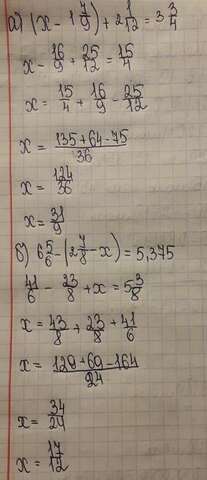 а) (x - 1 7/9) + 2 1/12 = 3 3/4
x - 16/9 + 25/12 = 15/4
x = 15/4 + 16/9 - 25/12
x = (135 + 64 - 75)/36
x = 124/36
x = 31/9
б) 6 5/6 - (2 7/8 - x) = 5,375
41/6 - 23/8 + x = 5 3/8
x = 43/8 + 23/8 + 41/6
x = (129 + 69 - 164)/24
x = 34/24
x = 17/12